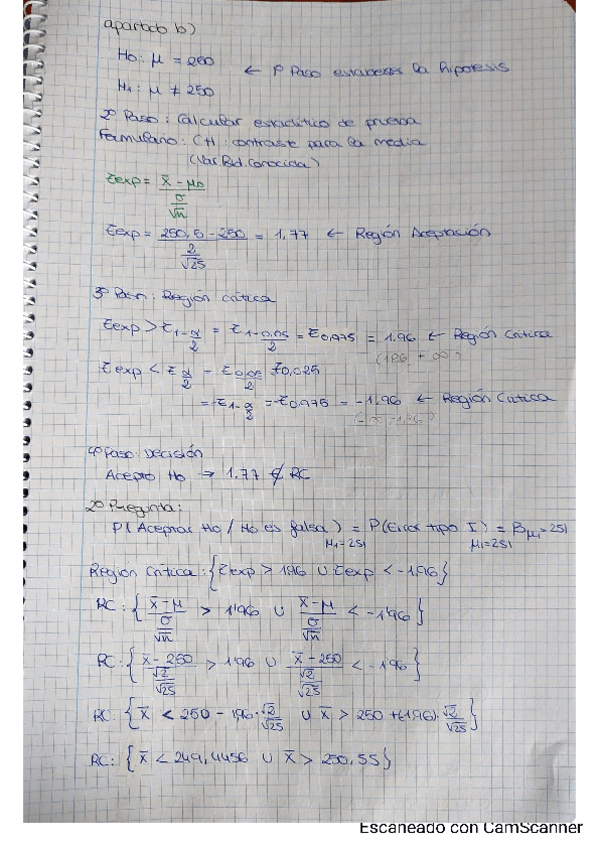 apartado b)
H0: μ = 250 ← 1º Paso establecer la hipotesis
H1: μ ≠ 250
2º Paso: Calcular estadístico de prueba
Formulario: CH: contraste para la media
(Var Pobl. Conocida)
Zexp = x̄ - μ0 / σ/√n
Zexp = 250,5 - 250 / 2/√25 = 1,77 ← Región Aceptación
3º Paso: Región crítica
Zexp > Z1-α/2 = Z1-0,05/2 = Z0,975 = 1.96 ← Región Crítica
(1,96, +∞)
Zexp < Zα/2 = Z0,05/2 Z0,025
= -Z1-α/2 = -Z0,975 = -1,96 ← Región Crítica
(-∞, -1,96)
4º Paso: Decisión
Acepto H0 → 1.77 ∉ RC
2º Pregunta:
P(Aceptar H0 / H0 es falsa) = P(Error tipo I) = βμ1=251
μ1=251 μ1=251
Región Crítica: {Zexp > 1'96 ∪ Zexp < -1,96}
RC: { x̄-μ / σ/√n > 1'96 ∪ x̄-μ / σ/√n < -1'96 }
RC: { x̄-250 / √2/√25 > 1'96 ∪ x̄-250 / √2/√25 < -1'96 }
RC: { x̄ < 250 - 1,96·√2/√25 ∪ x̄ > 250 + (1,96)·√2/√25 }
RC: { x̄ < 249,4456 ∪ x̄ > 250,55 }
Escaneado con CamScanner